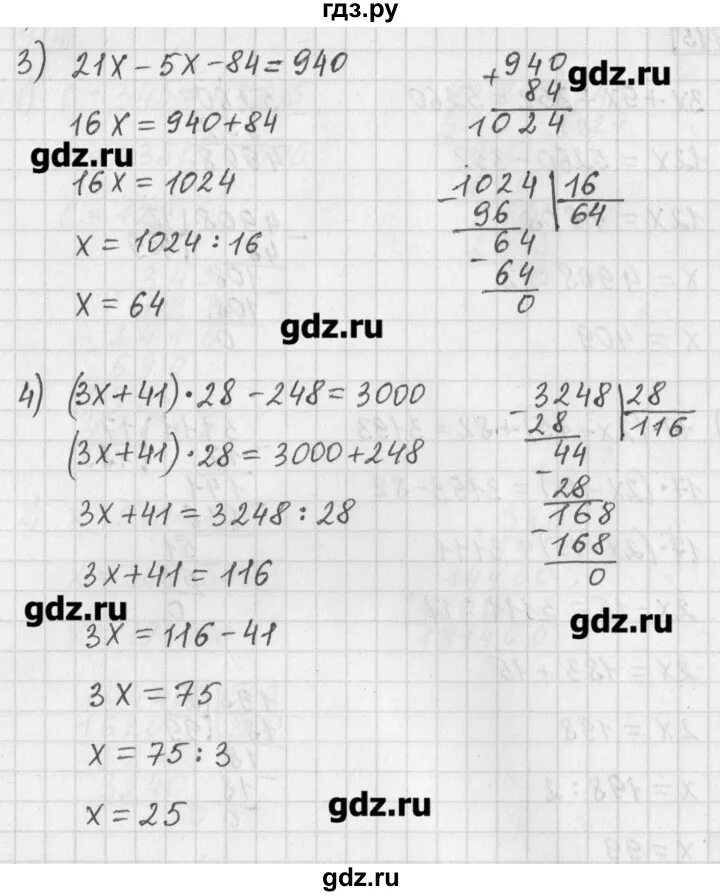 гдз.ру
3) 21x - 5x - 84 = 940
16x = 940 + 84
16x = 1024
x = 1024 : 16
x = 64
+ 940
84
1024
gdz.ru
gdz.ru
- 1024 | 16
96 64
- 64
64
0
gdz.ru
4) (3x + 41) · 28 - 248 = 3000
(3x + 41) · 28 = 3000 + 248
3x + 41 = 3248 : 28
3x + 41 = 116
3x = 116 - 41
3x = 75
x = 75 : 3
x = 25
- 3248 | 28
28 116
- 44
28
- 168
168
0
gdz.ru
gdz.ru
gdz.ru
gdz.ru